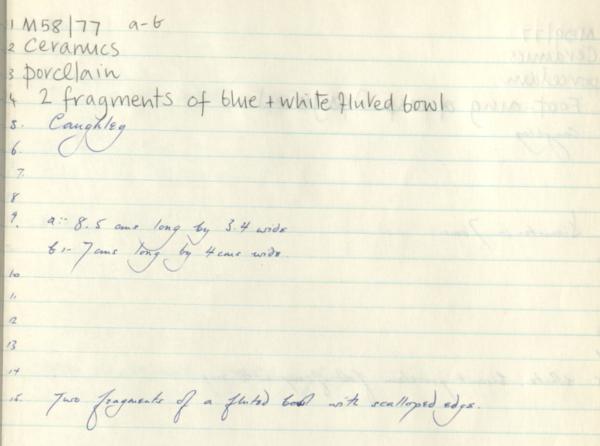 1 M58/77 a-b
2 Ceramics
3 porcelain
4 2 fragments of blue + white fluted bowl
5. Caughley
6.
7.
8
9. a:- 8.5 cms long by 3.4 wide
b:- 7 cms long by 4 cms wide.
10
11
12
13
14
15. Two fragments of a fluted bowl with scalloped edge.